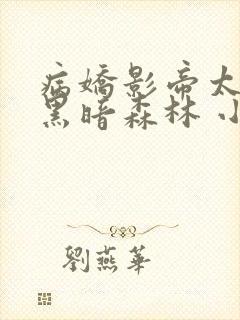 病嬌影帝太
黑暗森林 小
劉燕華